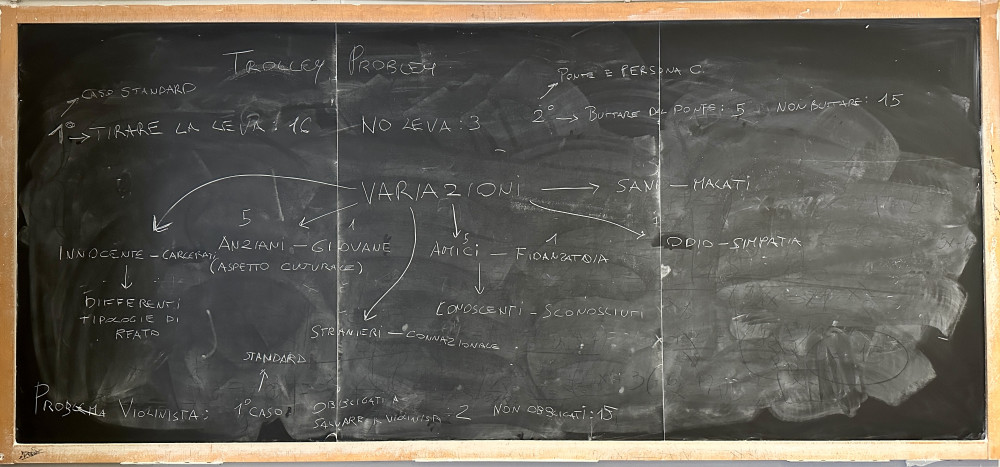 TROLLEY PROBLEM
CASO STANDARD
PONTE E PERSONA G.
1° → TIRARE LA LEVA: 16 NO LEVA: 3
2° → BUTTARE DAL PONTE: 5 NON BUTTARE: 15
VARIAZIONI → SANI - MALATI
5 1
INNOCENTE - CARCERATI
ANZIANI - GIOVANE
(ASPETTO CULTURALE)
5 1
AMICI - FIDANZATO/A
1
ODIO - SIMPATIA
DIFFERENTI
TIPOLOGIE DI
REATO
CONOSCENTI - SCONOSCIUTI
STRANIERI - CONNAZIONALE
STANDARD
PROBLEMA VIOLINISTA: 1° CASO OBBLIGATI A
SALVARE IL VIOLINISTA: 2 NON OBBLIGATI: 15